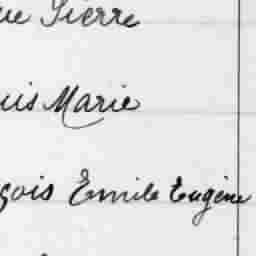 ue Pierre
uis Marie
çois Emile Eugène